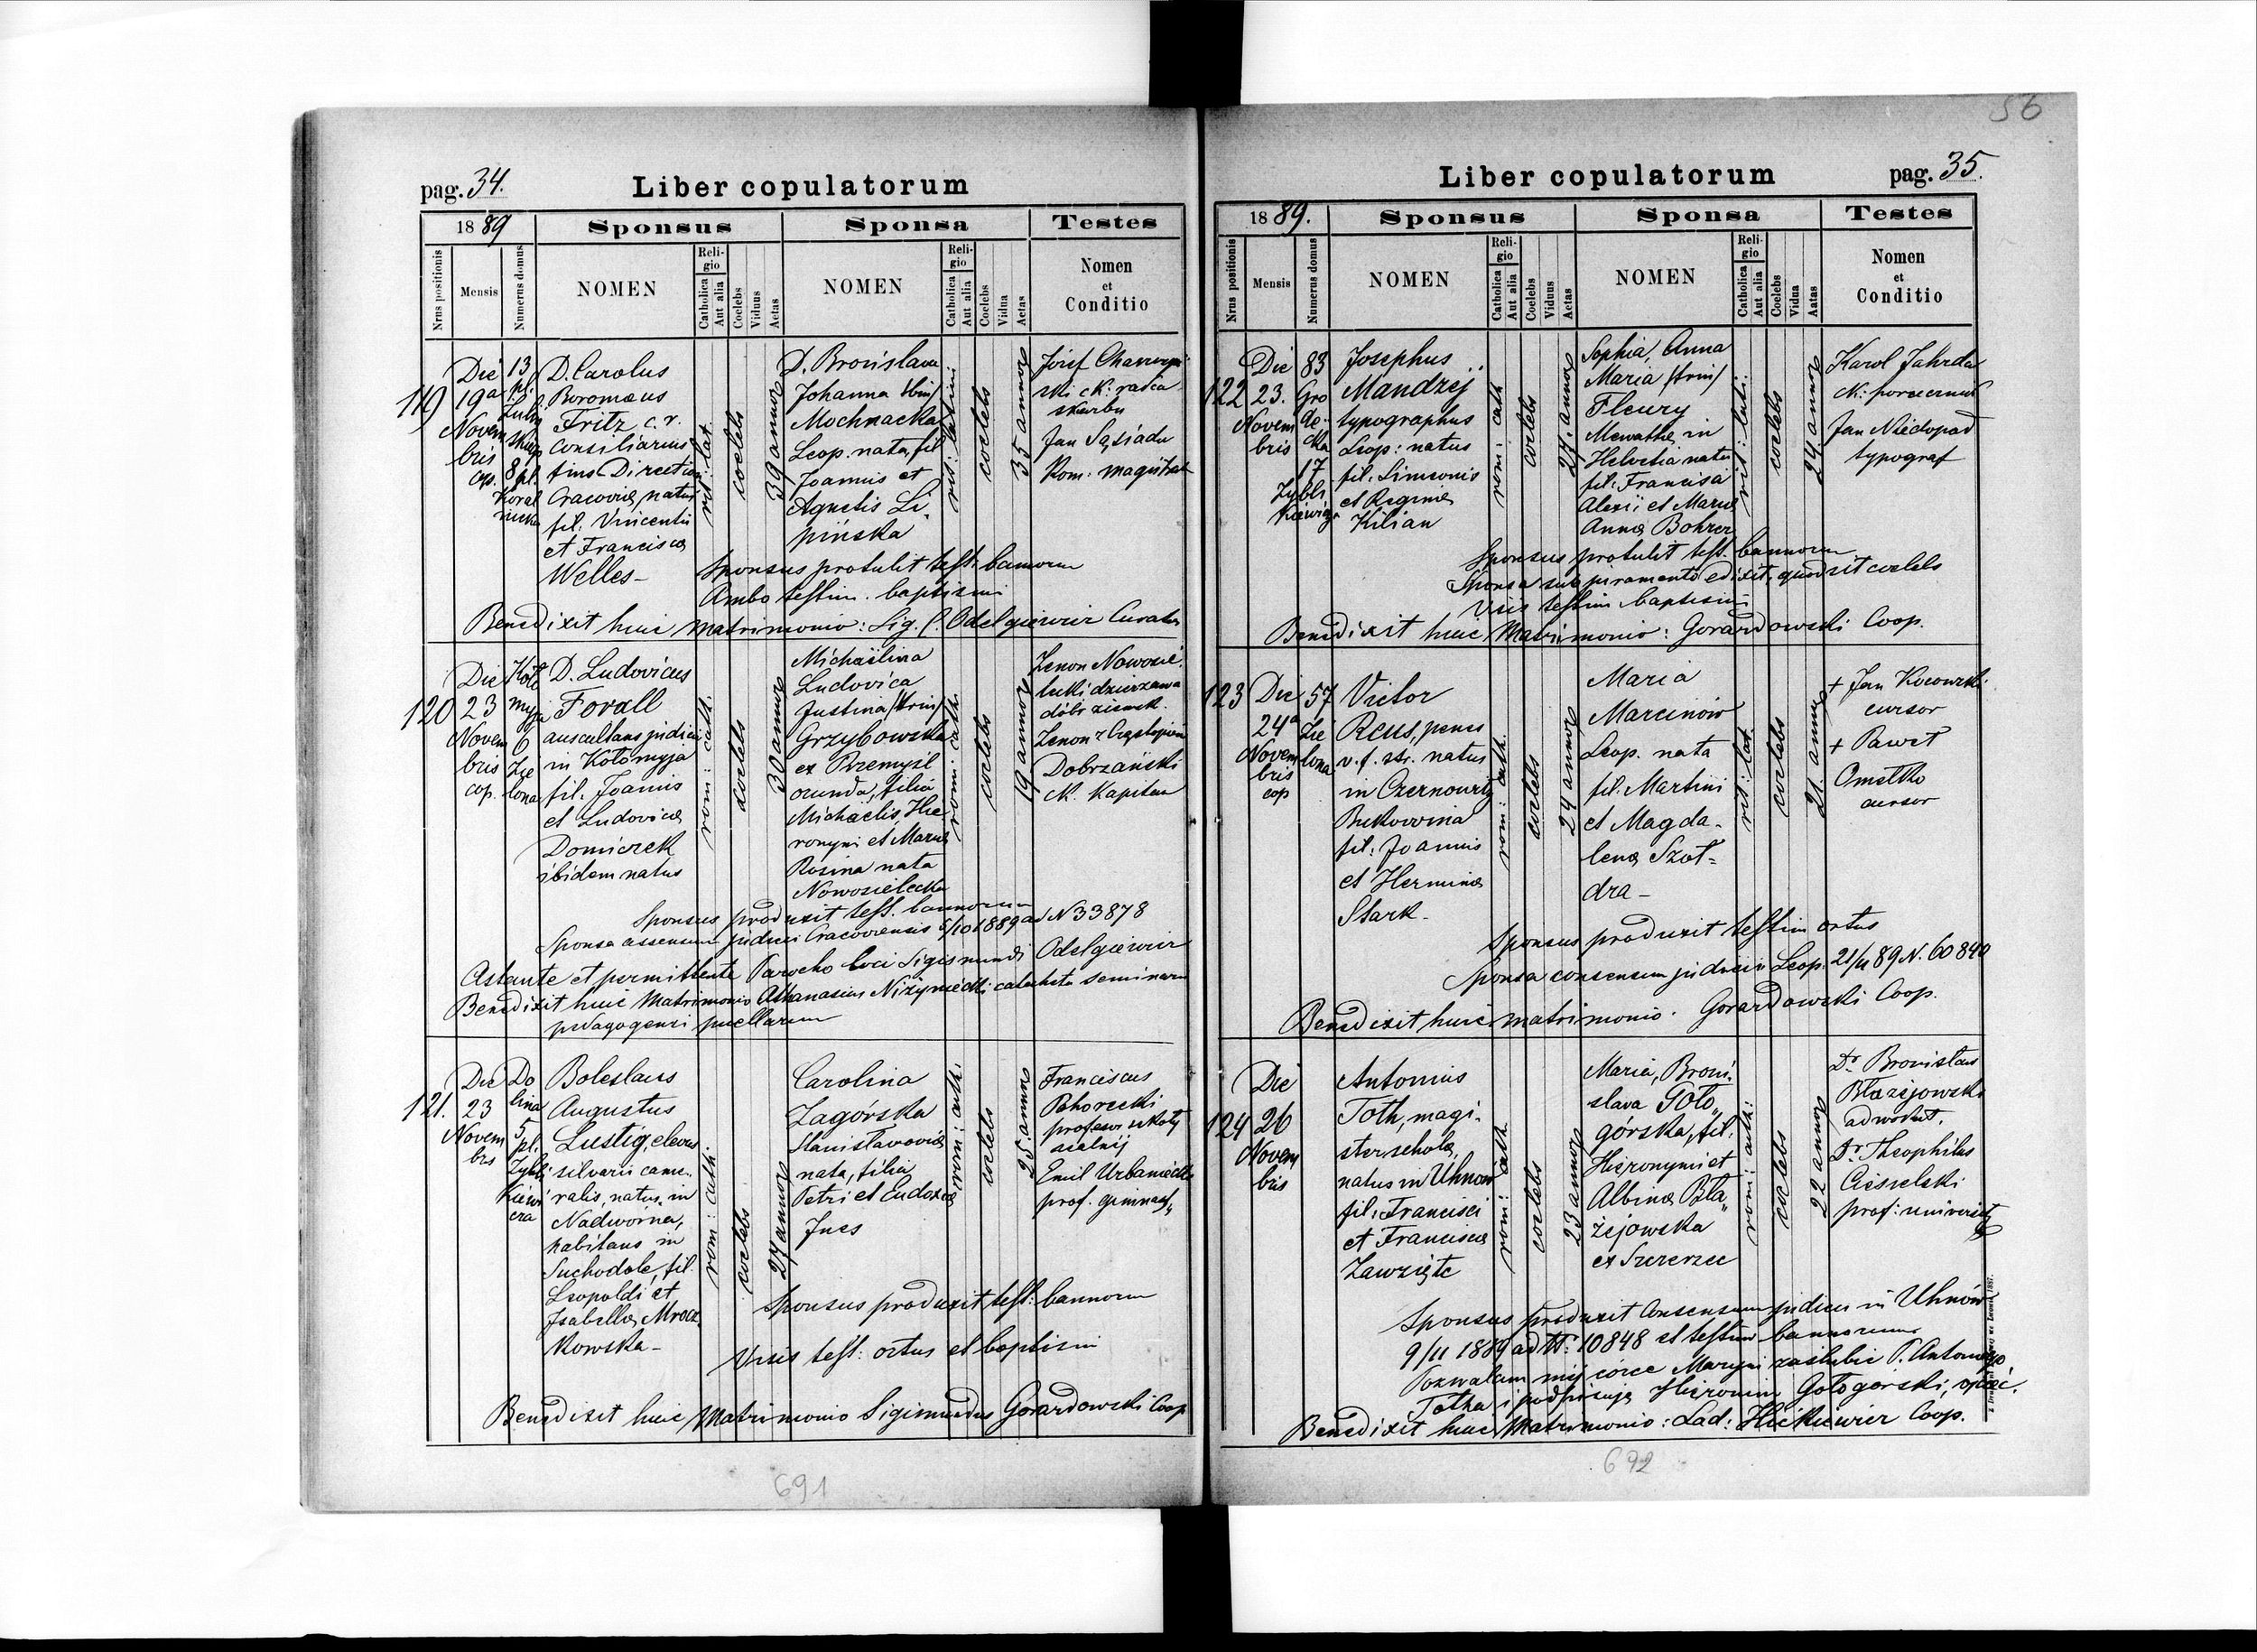 56
pag. 34.
Liber copulatorum
1889
Sponsus
Sponsa
Testes
Nrus positionis
Mensis
Numerus domus
NOMEN
Religio
Catholica
Aut alia
Coelebs
Viduus
Aetas
NOMEN
Religio
Catholica
Aut alia
Coelebs
Vidua
Aetas
Nomen
et
Conditio
119
Die
19a
Novem
bris
cop.
13
pl.
8 pl.
D. Carolus
Boromæus
Fritz c. r.
consiliarius
Cracoviæ natus
fil. Vincentii
et Franciscæ
Welles-
rit: lat.
coelebs
39 annor
D. Bronislava
Johanna /bin/
Mochnacka
Leop. nata, fil
Joannis et
Agnetis Li-
pińska
rit: latini
coelebs
35 annor
Józef
ski ck: radca
skarbu
Jan Sąsiadu
Kom: magistrat
Sponsus protulit test: bannorum
Ambo testim. baptismi
Benedixit huic Matrimonio: Sig. C. Odelgiewicz Curatus
120
Die
23
Novem
bris
cop.
Koło
myja
6
Zie
lona
D. Ludovicus
Forall
auscultans judicii
in Kołomyja
fil. Joannis
et Ludovicæ
Domiczek
ibidem natus
rom: cath.
coelebs
30 annor
Michaëlina
Ludovica
Justina /trin/
Grzybowska
ex Przemyśl
oriunda, filia
Michaëlis, Hie
ronymi et Mariæ
Rosina nata
Nowosielecka
rom: cath.
coelebs
19 annor
Zenon Nowosie-
lecki dzierzawca
dóbr ziemsk.
Zenon
Dobrzański
ck. Kapitan
Sponsus produxit test. bannorum
Sponsa assensum judicii Cracoviensis 5/10 1889 ad N 33878
Astante et permittente Parocho loci Sigismundi Odelgiewicz
Benedixit huic Matrimonio Athanasius Niżyniecki catecheta seminarii
pædagogensi puellarum
121.
Die
23
Novem
bris
Do
lina
5
pl.
Zybli
kiewi
cza
Boleslaus
Augustus
Lustig, elevus
silvarii came-
ralis, natus in
Nadwórna,
habitans in
Suchodole, fil.
Leopoldi et
Isabellæ Mrocz-
kowska-
rom: cath.
coelebs
27 annor
Carolina
Zagórska
Stanislavoviæ
nata, filia
Petri et Eudoxiæ
Jues
rom: cath.
coelebs
25 annor
Franciscus
Pohorecki
profesor szkoły
realnej
Emil Urbanicki
prof. gimnas.
Sponsus produxit test: bannorum
Visis test: ortus et baptismi
Benedixit huic Matrimonio Sigismundus Gorazdowski Coop
691
Liber copulatorum
pag. 35.
1889.
Sponsus
Sponsa
Testes
Nrus positionis
Mensis
Numerus domus
NOMEN
Religio
Catholica
Aut alia
Coelebs
Viduus
Aetas
NOMEN
Religio
Catholica
Aut alia
Coelebs
Vidua
Aatas
Nomen
et
Conditio
122
Die
23.
Novem
bris
83
Gro
de-
cka
17
Zybli
kiewicza
Josephus
Mandzej
typographus
Leop: natus
fil. Simeonis
et Reginæ
Kilian
rom: cath
coelebs
27. annor
Sophia, Anna
Maria /trin/
Fleury
in
Helvetia nata
fil: Francisci
Alexii et Mariæ
Annæ Bohrer
rit: lati:
coelebs
24 annor
Karol Jahrda
Jan Niedopad
typograf
Sponsus protulit test. bannorum
Sponsa sub juramento edixit, quod sit coelebs
Visis testim baptismi
Benedixit huic Matrimonio: Gorazdowski Coop.
123
Die
24a
Novem
bris
cop
57
Zie
lona
Victor
Reus, penes
v. f. str. natus
in Czernowitz
Bukovvina
fil: Joannis
et Herminæ
Stark-
rom: cath.
coelebs
24 annor
Maria
Marcinów
Leop. nata
fil. Martini
et Magda-
lenæ Szoł-
dra-
rit: lat.
coelebs
21. annor
+ Jan Kocowski
cursor
+ Paweł
Omełko
cursor
Sponsus produxit testim ortus
Sponsa consensum judicii Leop. 21/11 89 N. 60840
Benedixit huic matrimonio. Gorazdowski Coop.
124
Die
26
Novem
bris
Antonius
Toth, magi-
ster scholæ,
natus in Uhnów
fil: Francisci
et Franciscæ
Zawzięte
rom: cath.
coelebs
23 annor
Maria, Broni-
slava Goło-
górska, fil.
Hieronymi et
Albinæ Bła-
żejowska
ex Szczerzec
rom: cath:
coelebs
22 annor
Dr Bronislaus
Błażejowski
adwokat.
Dr Theophilus
Ciesielski
prof: universit
Sponsus produxit Consensum judicii in Uhnów
9/11 1889 ad N: 10848 et testim bannorum
Pozwalam mej córce Maryi zaślubić P. Antoniego
Totha i podpisuję Hieronim Gołogórski, ojciec.
Benedixit huic Matrimonio: Lad: Hickiewicz Coop.
692